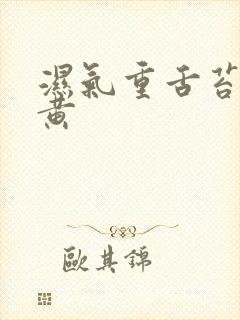 濕氣重舌苔
黃
歐其錦